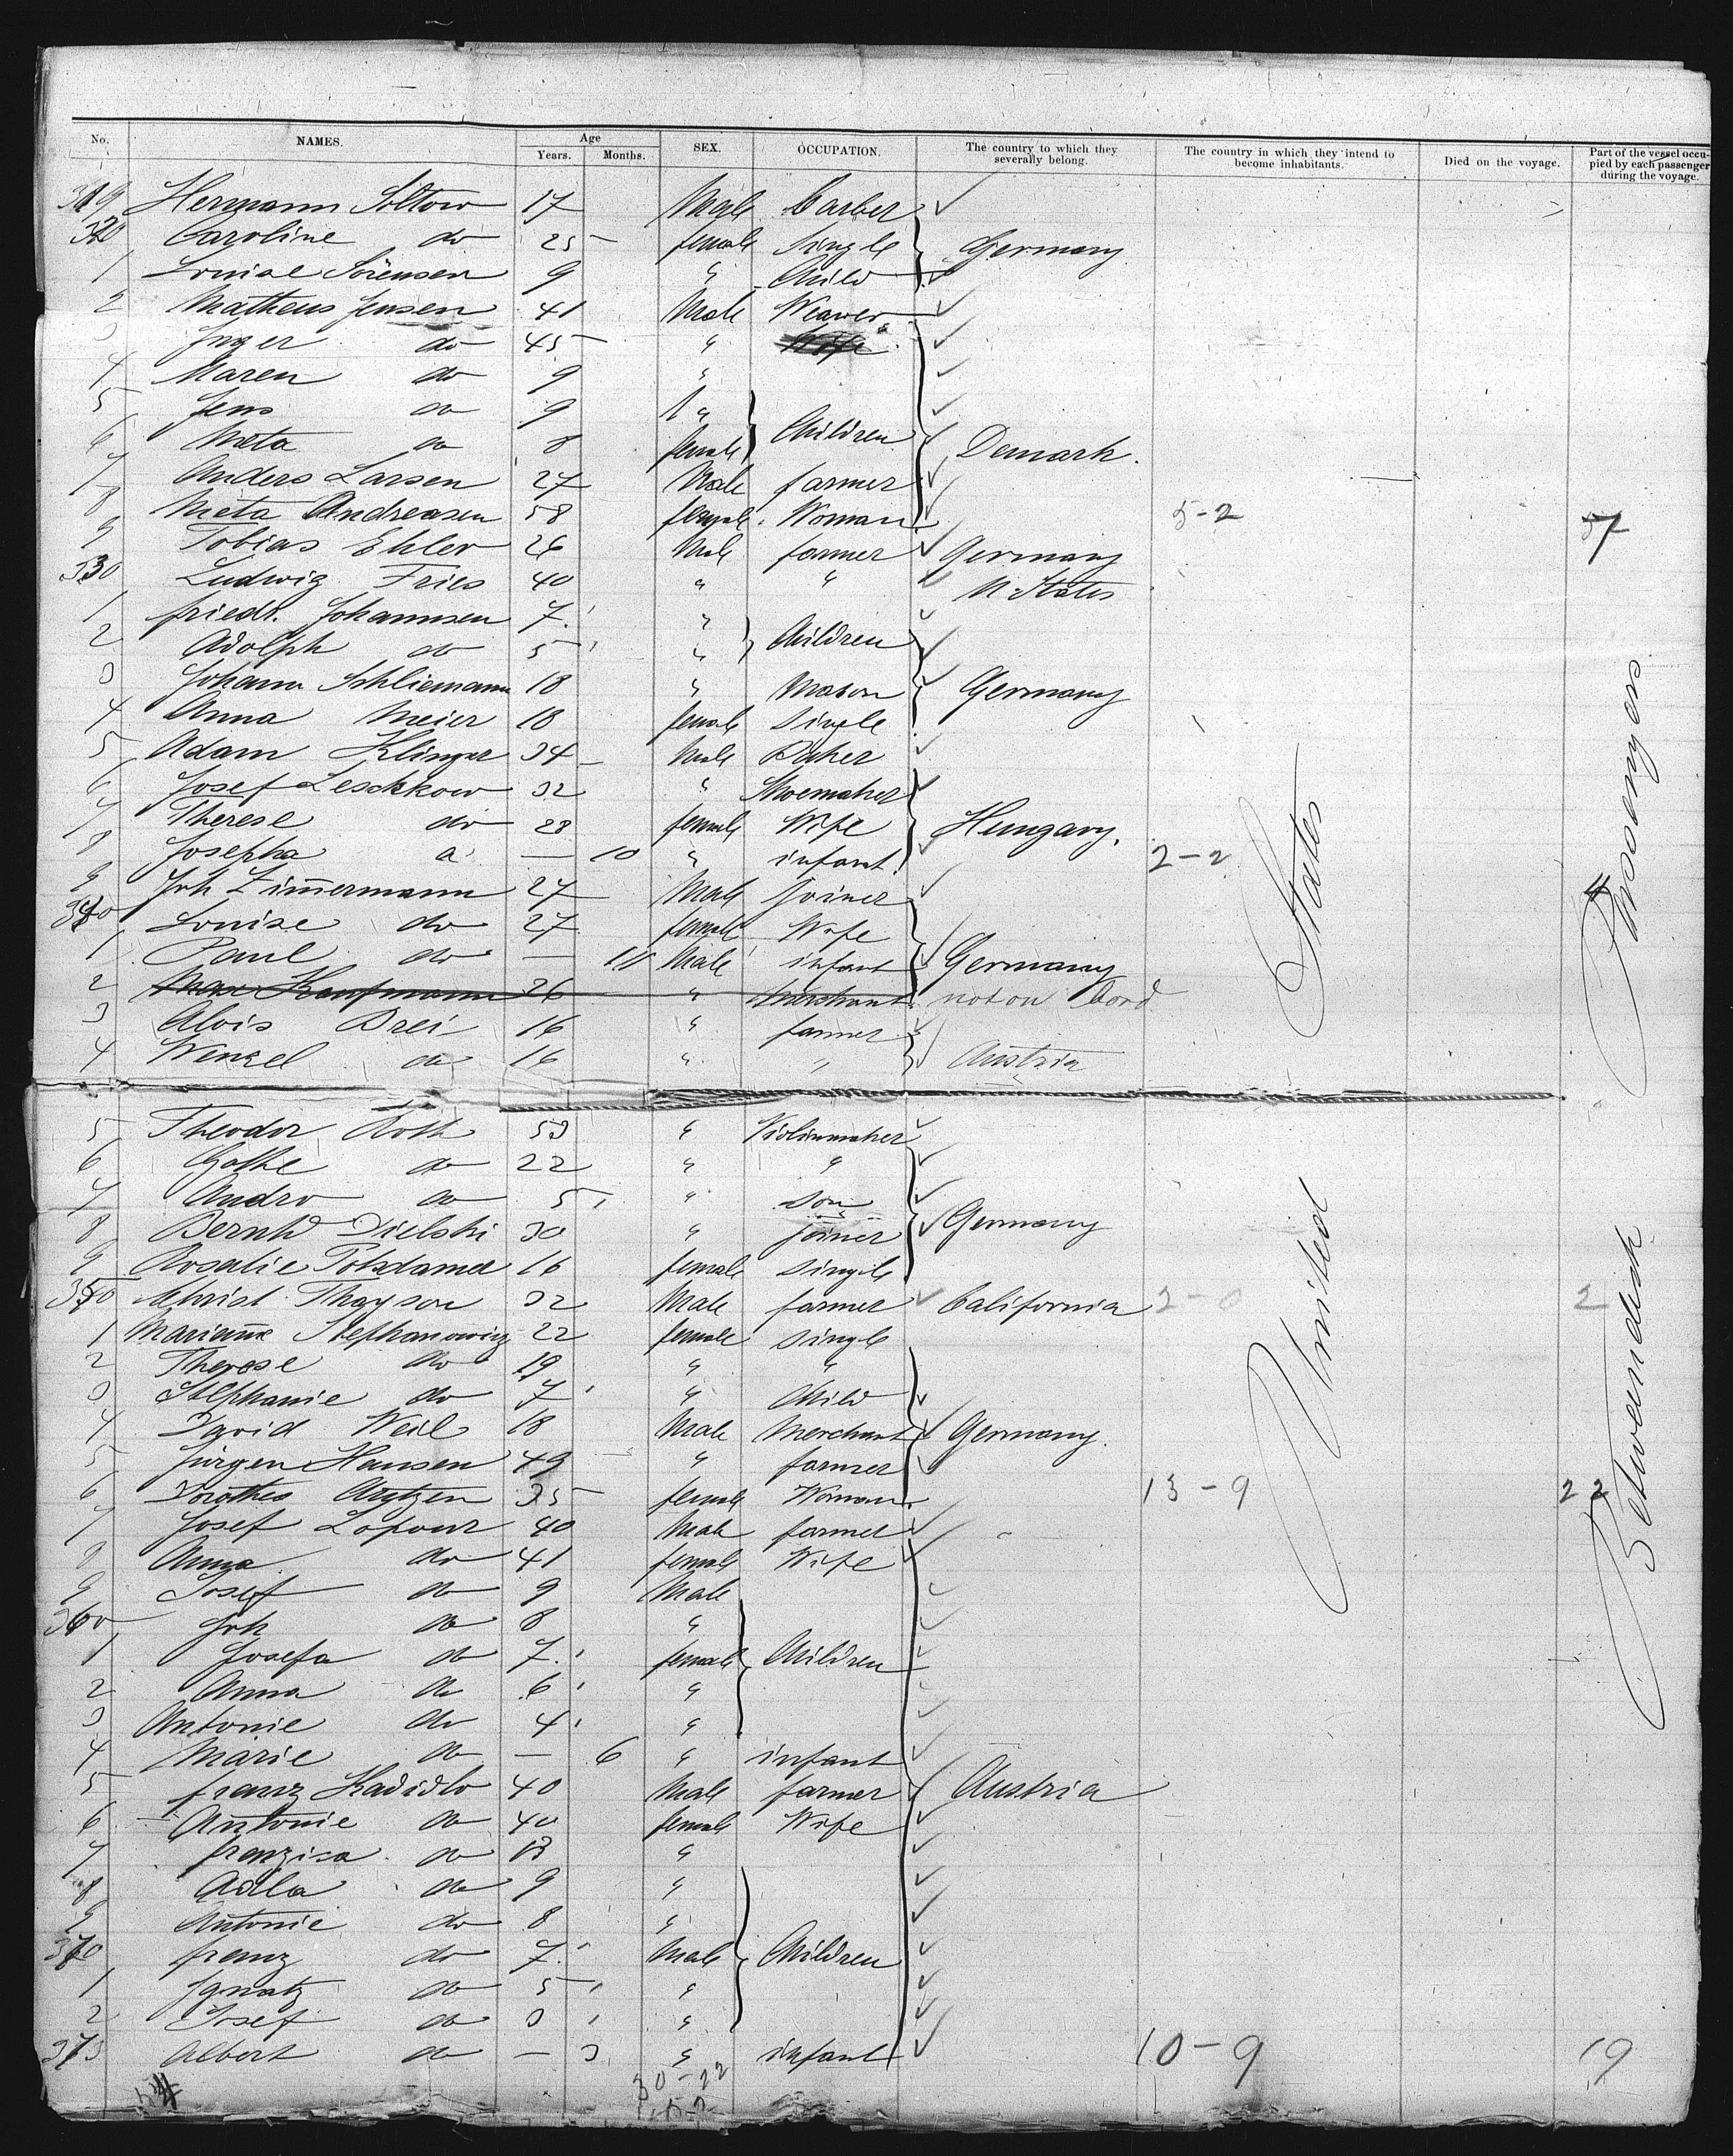 No. NAMES. Age Years. Months. SEX. OCCUPATION. The country to which they severally belong. The country in which they intend to become inhabitants. Died on the voyage. Part of the vessel occupied by each passenger during the voyage.
319 Hermann Soltow 17 Male Barber
320 Caroline do 25 female Single Germany
1 Louise Sörensen 9 " Child
2 Matheus Jensen 41 Male Weawer
3 Inger do 45 " Wife
4 Maren do 9 "
5 Jens do 9 "
6 Meta do 8 female Children Demark.
7 Anders Larsen 27 Male farmer
8 Meta Andreasen 58 female Woman 5-2
9 Tobias Ehler 26 Male farmer Germany
330 Ludwig Fries 40 " " U States
1 friedr. Johannsen 7 "
2 Adolph do 5 " Children
3 Johann Schliemann 18 " Mason Germany
4 Anna Meier 18 female Single
5 Adam Klinger 34 Male Baker
6 Josef Leschkow 32 " Shoemaker
7 Therese do 28 female Wife Hungary.
8 Josepha do — 10 " infant 2-2 4
9 Joh Zimmermann 27 Male Joiner
340 Louise do 27 female Wife
1 Paul do — 11 Male infant Germany
2 Max Kaufmann 26 " Merchant not on bord
3 Alois Brei 16 " farmer
4 Wenzel do 16 " " Austria
5 Theodor Roth 53 " Violinmaker
6 Gothe do 22 " "
7 Andro do 5 " son
8 Bernhd Dielski 30 " joiner Germany
9 Rosalie Potsdamer 16 female single
350 Christ. Thayson 32 Male farmer California 2-0 2
1 Marianne Stephanowicz 22 female single
2 Therese do 19 " "
3 Stephanie do 7 " Child
4 David Weil 18 Male Merchant Germany.
5 Jürgen Hansen 49 " farmer
6 Dorothea Arntzen 35 female Woman 13-9 22
7 Josef Lopour 40 Male farmer
8 Anna do 41 female Wife
9 Josef do 9 Male
360 Joh do 8 "
1 Josefa do 7 female Children
2 Anna do 6 "
3 Antonie do 4 "
4 Marie do — 6 " infant
5 franz Kadidlo 40 Male farmer Austria
6 Antonie do 40 female Wife
7 franzisa do 13 "
8 Adla do 9 "
9 Antonie do 8 "
370 franz do 7 Male Children
1 Ignatz do 5 "
2 Josef do 3 "
373 Albert do — 3 " infant 10-9 19
30-22
United States
Betweendeck Passengers